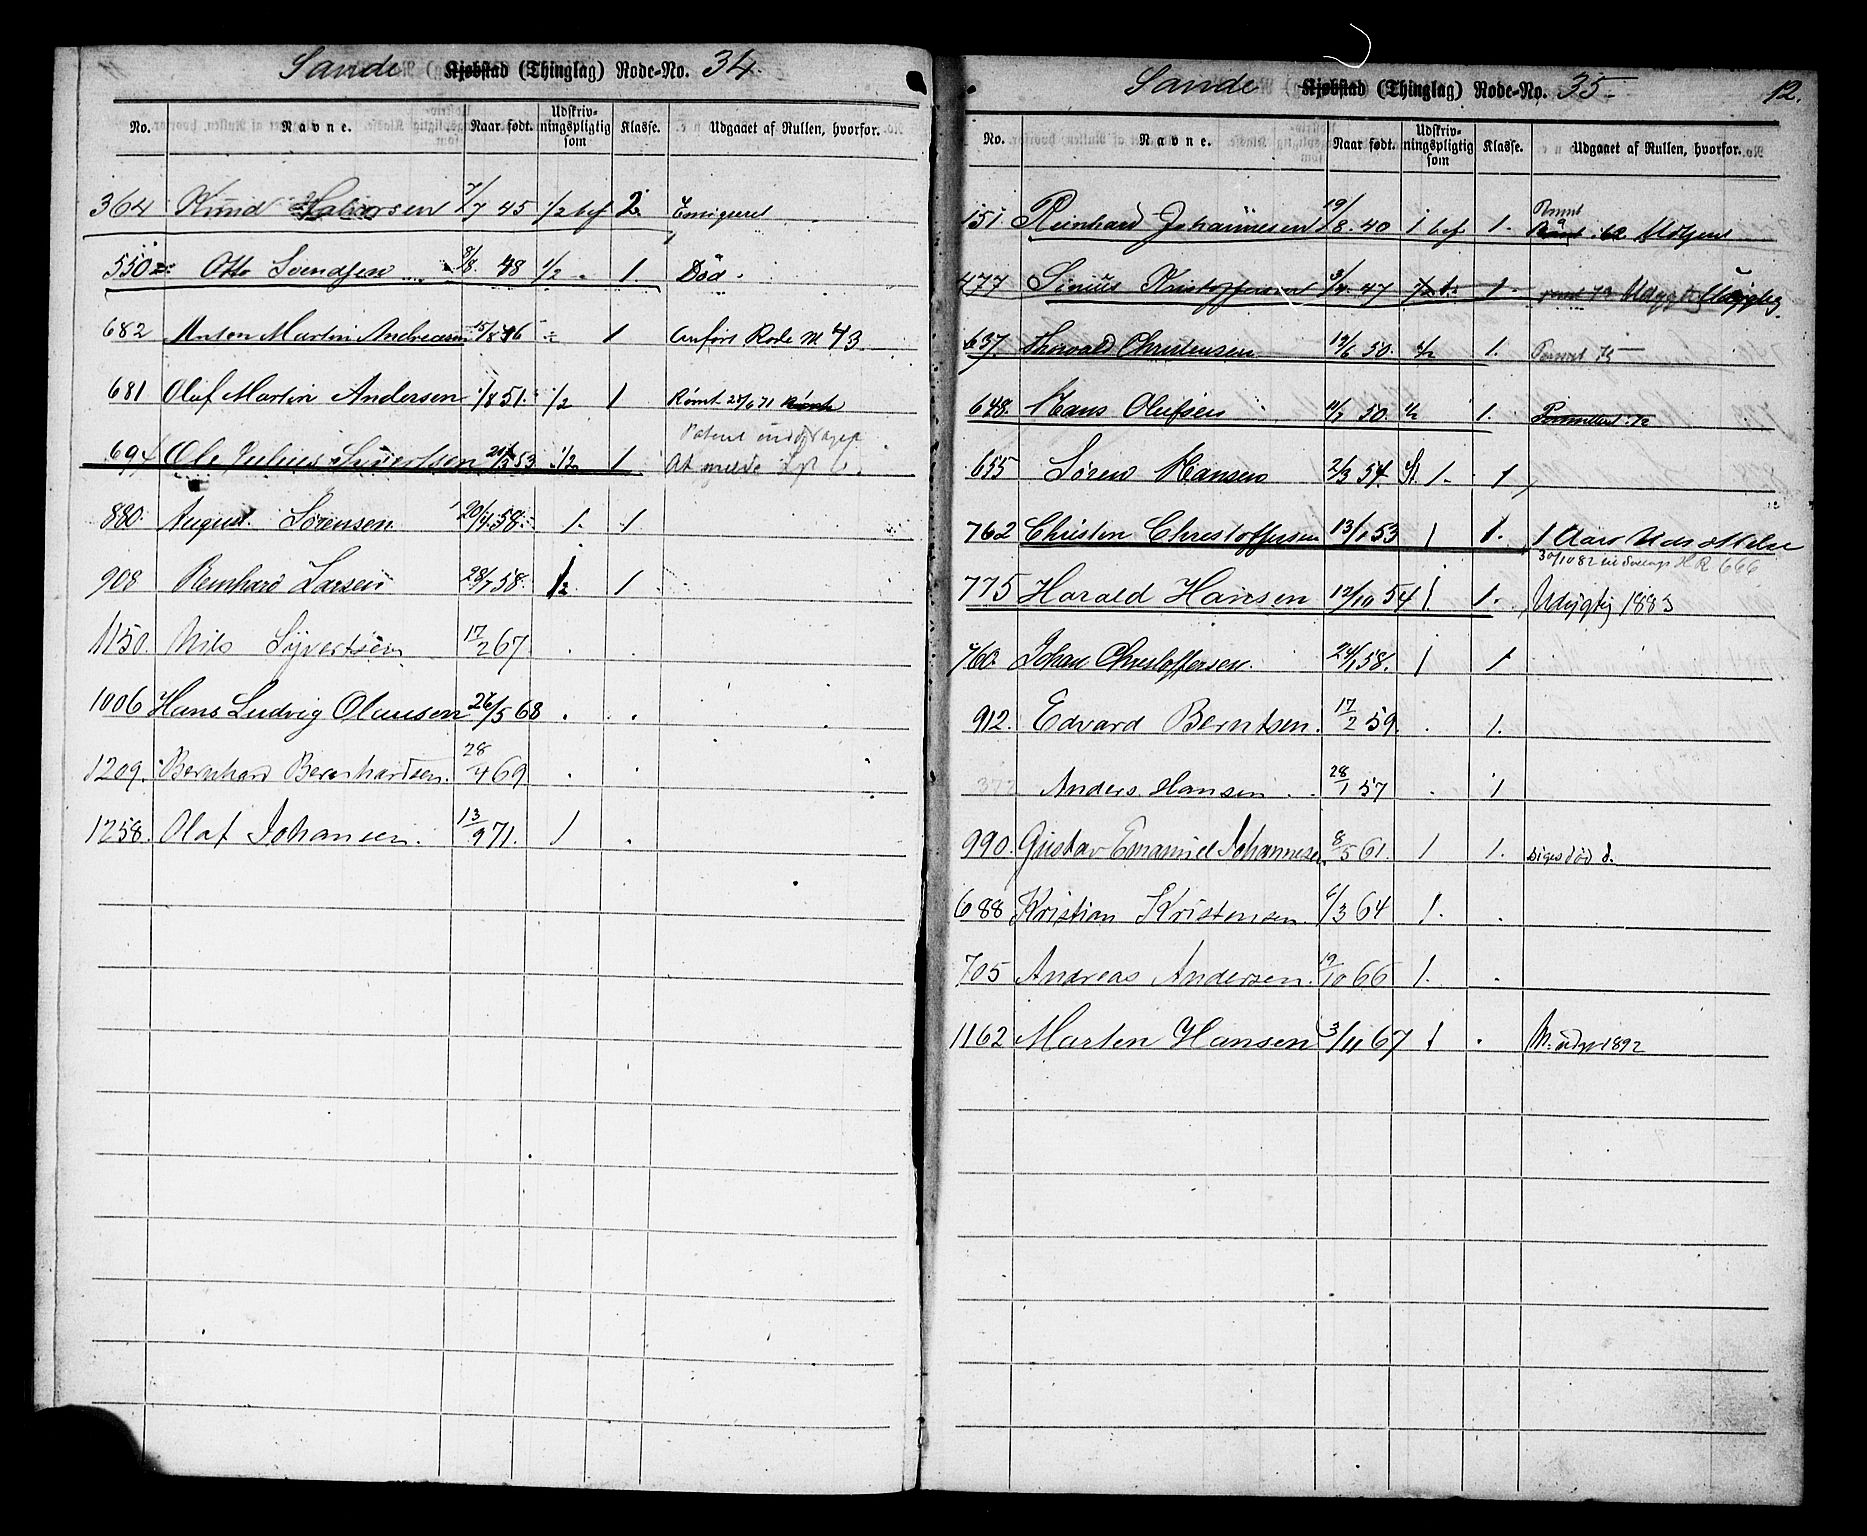 Sande Kjøbstad (Thinglag) Rode-No. 34.
No. Navne. Naar født. Udskriv-ningspligtig som Klasse. Udgaaet af Rullen, hvorfor.
364 Knud Halvorsen 7/7 45 1/2 bef 2. Emigreret
550 Otto Svendsen 3/8 48 1/2 1. Død.
682 Anton Martin Andreasen 15/8 46 1 Anført Rode No 43
681 Olaf Martin Andersen 1/8 51. 1/2 1 Rømt 28/6 71
694 Ole Julius Sivertsen 53 1/2 1
880. August Sørensen 20/4 58. 1. 1
908 Bernhard Larsen 28/7 58. 1/2 1
1150. Nils Syvertsen 17/2 67.
1006 Hans Ludvig Olausen 26/5 68
1209. Bernhard Bernhardsen. 28/4 69
1258. Olaf Johansen. 13/9 71. 1
Sande Kjøbstad (Thinglag) Rode-No. 35. 12.
No. Navne. Naar født. Udskriv-ningspligtig som Klasse. Udgaaet af Rullen, hvorfor.
Rømt
151. Reinhard Johannesen 19/8. 40 1 bef 1.
477 Kristoffersen 3/4. 47 1.
637. Thorvald Christensen 13/6 50. 1/2 1.
648. Hans Olufsen 11/7 50. 1/2 1.
655 Søren Hansen 2/3 54. 1. 1
762 Christen Christoffersen 13/1 53 1 1. 1 Aars Udsættelse
30/10 82 HR 666
775 Harald Hansen 12/10 54 1. 1. Udygtig 1883
760. Johan Christoffersen. 24/1 58. 1 1
912. Edvard Berntsen. 17/2 59. 1.
372 Anders Hansen. 28/1 57 1
990. Gustav Emanuel Johannesen. 8/5 61. 1 1. siges død
688 Kristian Kristensen. 6/3 64 1.
705 Andreas Andersen. 19/10 66 1.
1162 Marten Hansen 3/11 67 1 1892